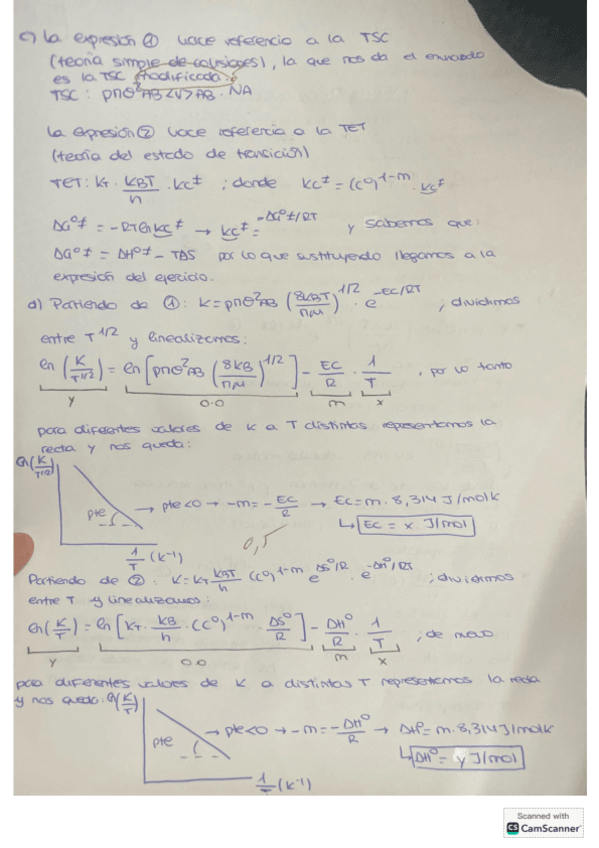 c) La expresión ① hace referencia a la TSC
(teoría simple de colisiones), la que nos da el enunciado
es la TSC modificada:
TSC: pπσ²AB<v>AB · NA
La expresión ② hace referencia a la TET
(teoría del estado de transición)
TET: KT · KBT/h · Kc‡ ; donde Kc‡ = (c⁰)^1-m · Kc‡
ΔG⁰‡ = -RTlnKc‡ → Kc‡ = e^-ΔG⁰‡/RT y sabemos que:
ΔG⁰‡ = ΔH⁰‡ - TΔS por lo que sustituyendo llegamos a la
expresión del ejercicio.
d) Partiendo de ①: K = pπσ²AB (8KBT/πμ)^1/2 · e^-EC/RT ; dividimos
entre T^1/2 y linealizamos:
ln(K/T^1/2) = ln[pπσ²AB (8KB/πμ)^1/2] - EC/R · 1/T , por lo tanto
y o.o m x
para diferentes valores de K a T distintas representamos la
recta y nos queda:
ln(K/T^1/2)
pte → pte<0 → -m = -EC/R → EC = m · 8,314 J/molK
↳ EC = x J/mol
1/T (K⁻¹)
0,5
Partiendo de ②: K = KT KBT/h (c⁰)^1-m e^ΔS⁰/R · e^-ΔH⁰/RT ; dividimos
entre T y linealizamos:
ln(K/T) = ln[KT · KB/h · (c⁰)^1-m · ΔS⁰/R] - ΔH⁰/R · 1/T ; de nuevo
y o.o m x
para diferentes valores de K a distintas T representamos la recta
y nos queda: ln(K/T)
pte → pte<0 → -m = -ΔH⁰/R → ΔH⁰ = m · 8,314 J/molK
↳ ΔH⁰ = y J/mol
1/T (K⁻¹)
Scanned with
CS CamScanner